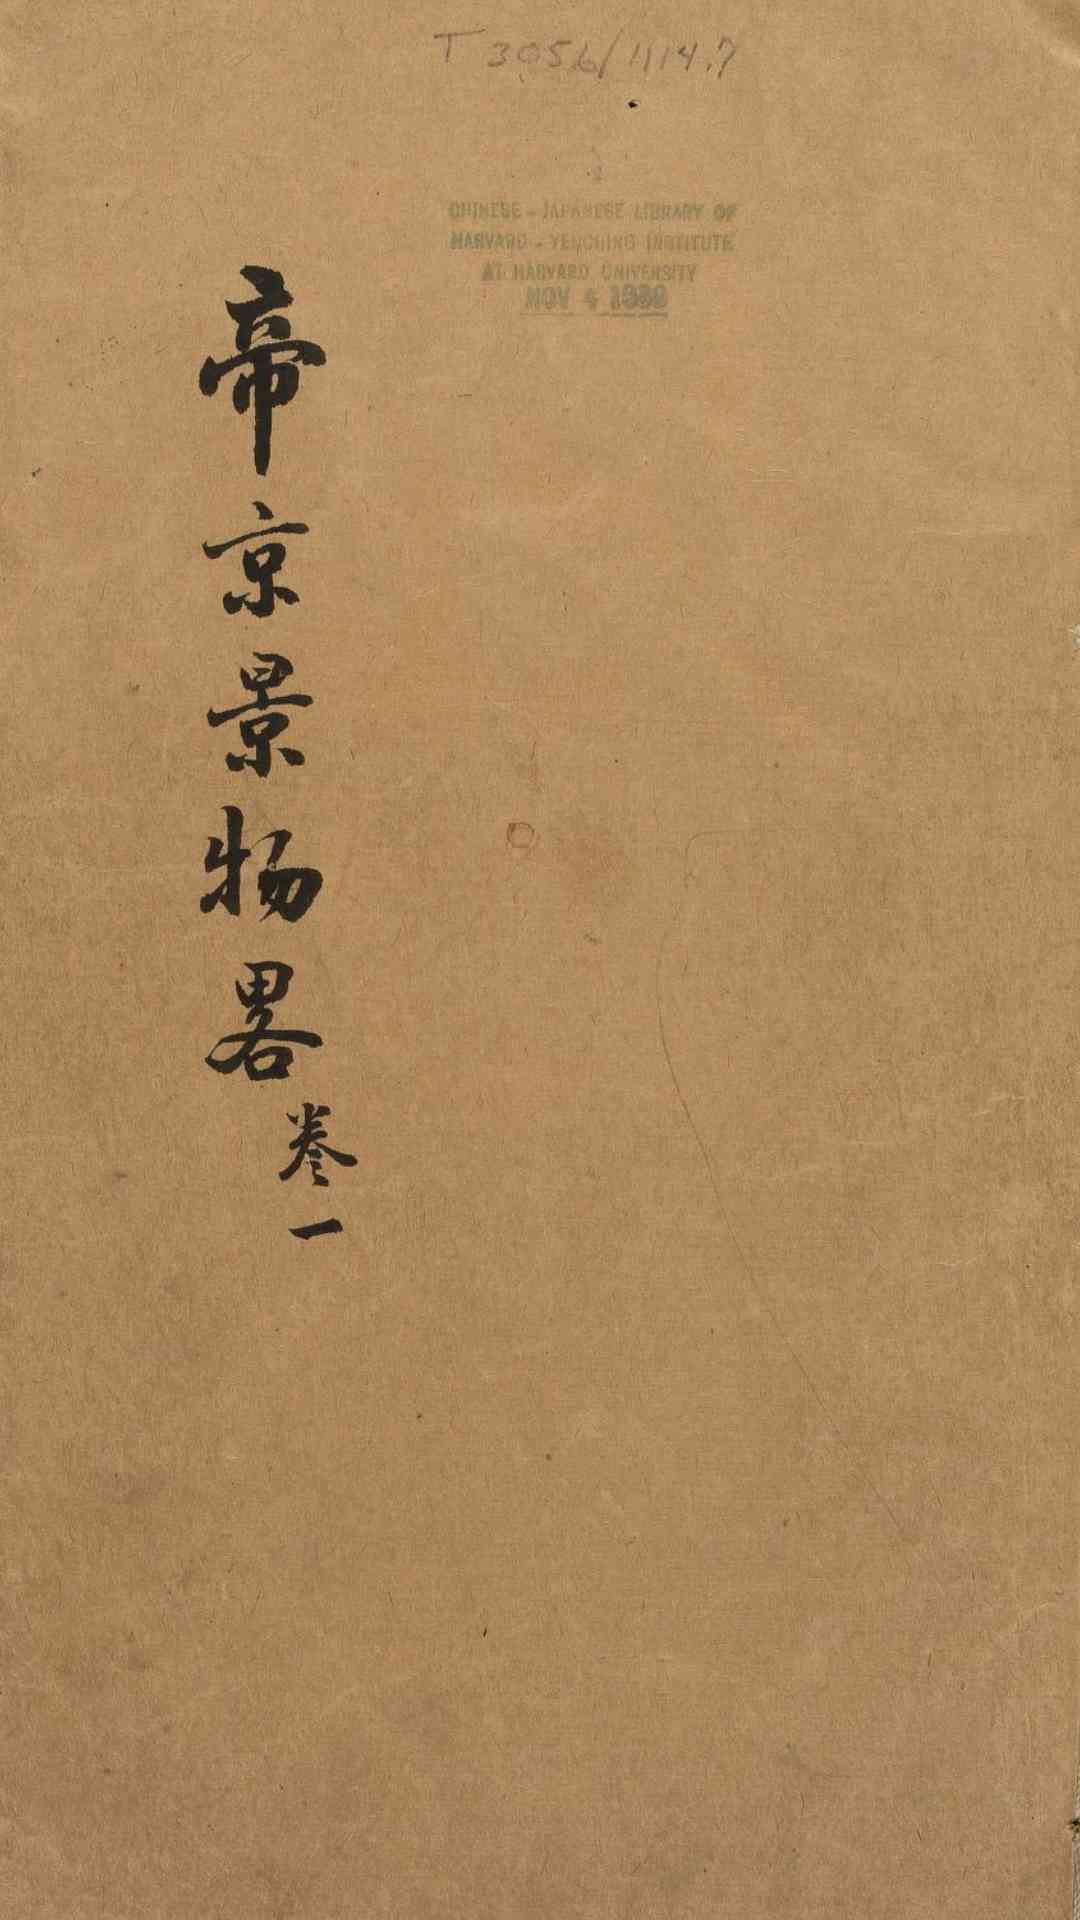 T 3056/1114.7
CHINESE - JAPANESE LIBRARY OF
HARVARD - YENCHING INSTITUTE
AT HARVARD UNIVERSITY
NOV 4 1939
帝京景物畧
卷一